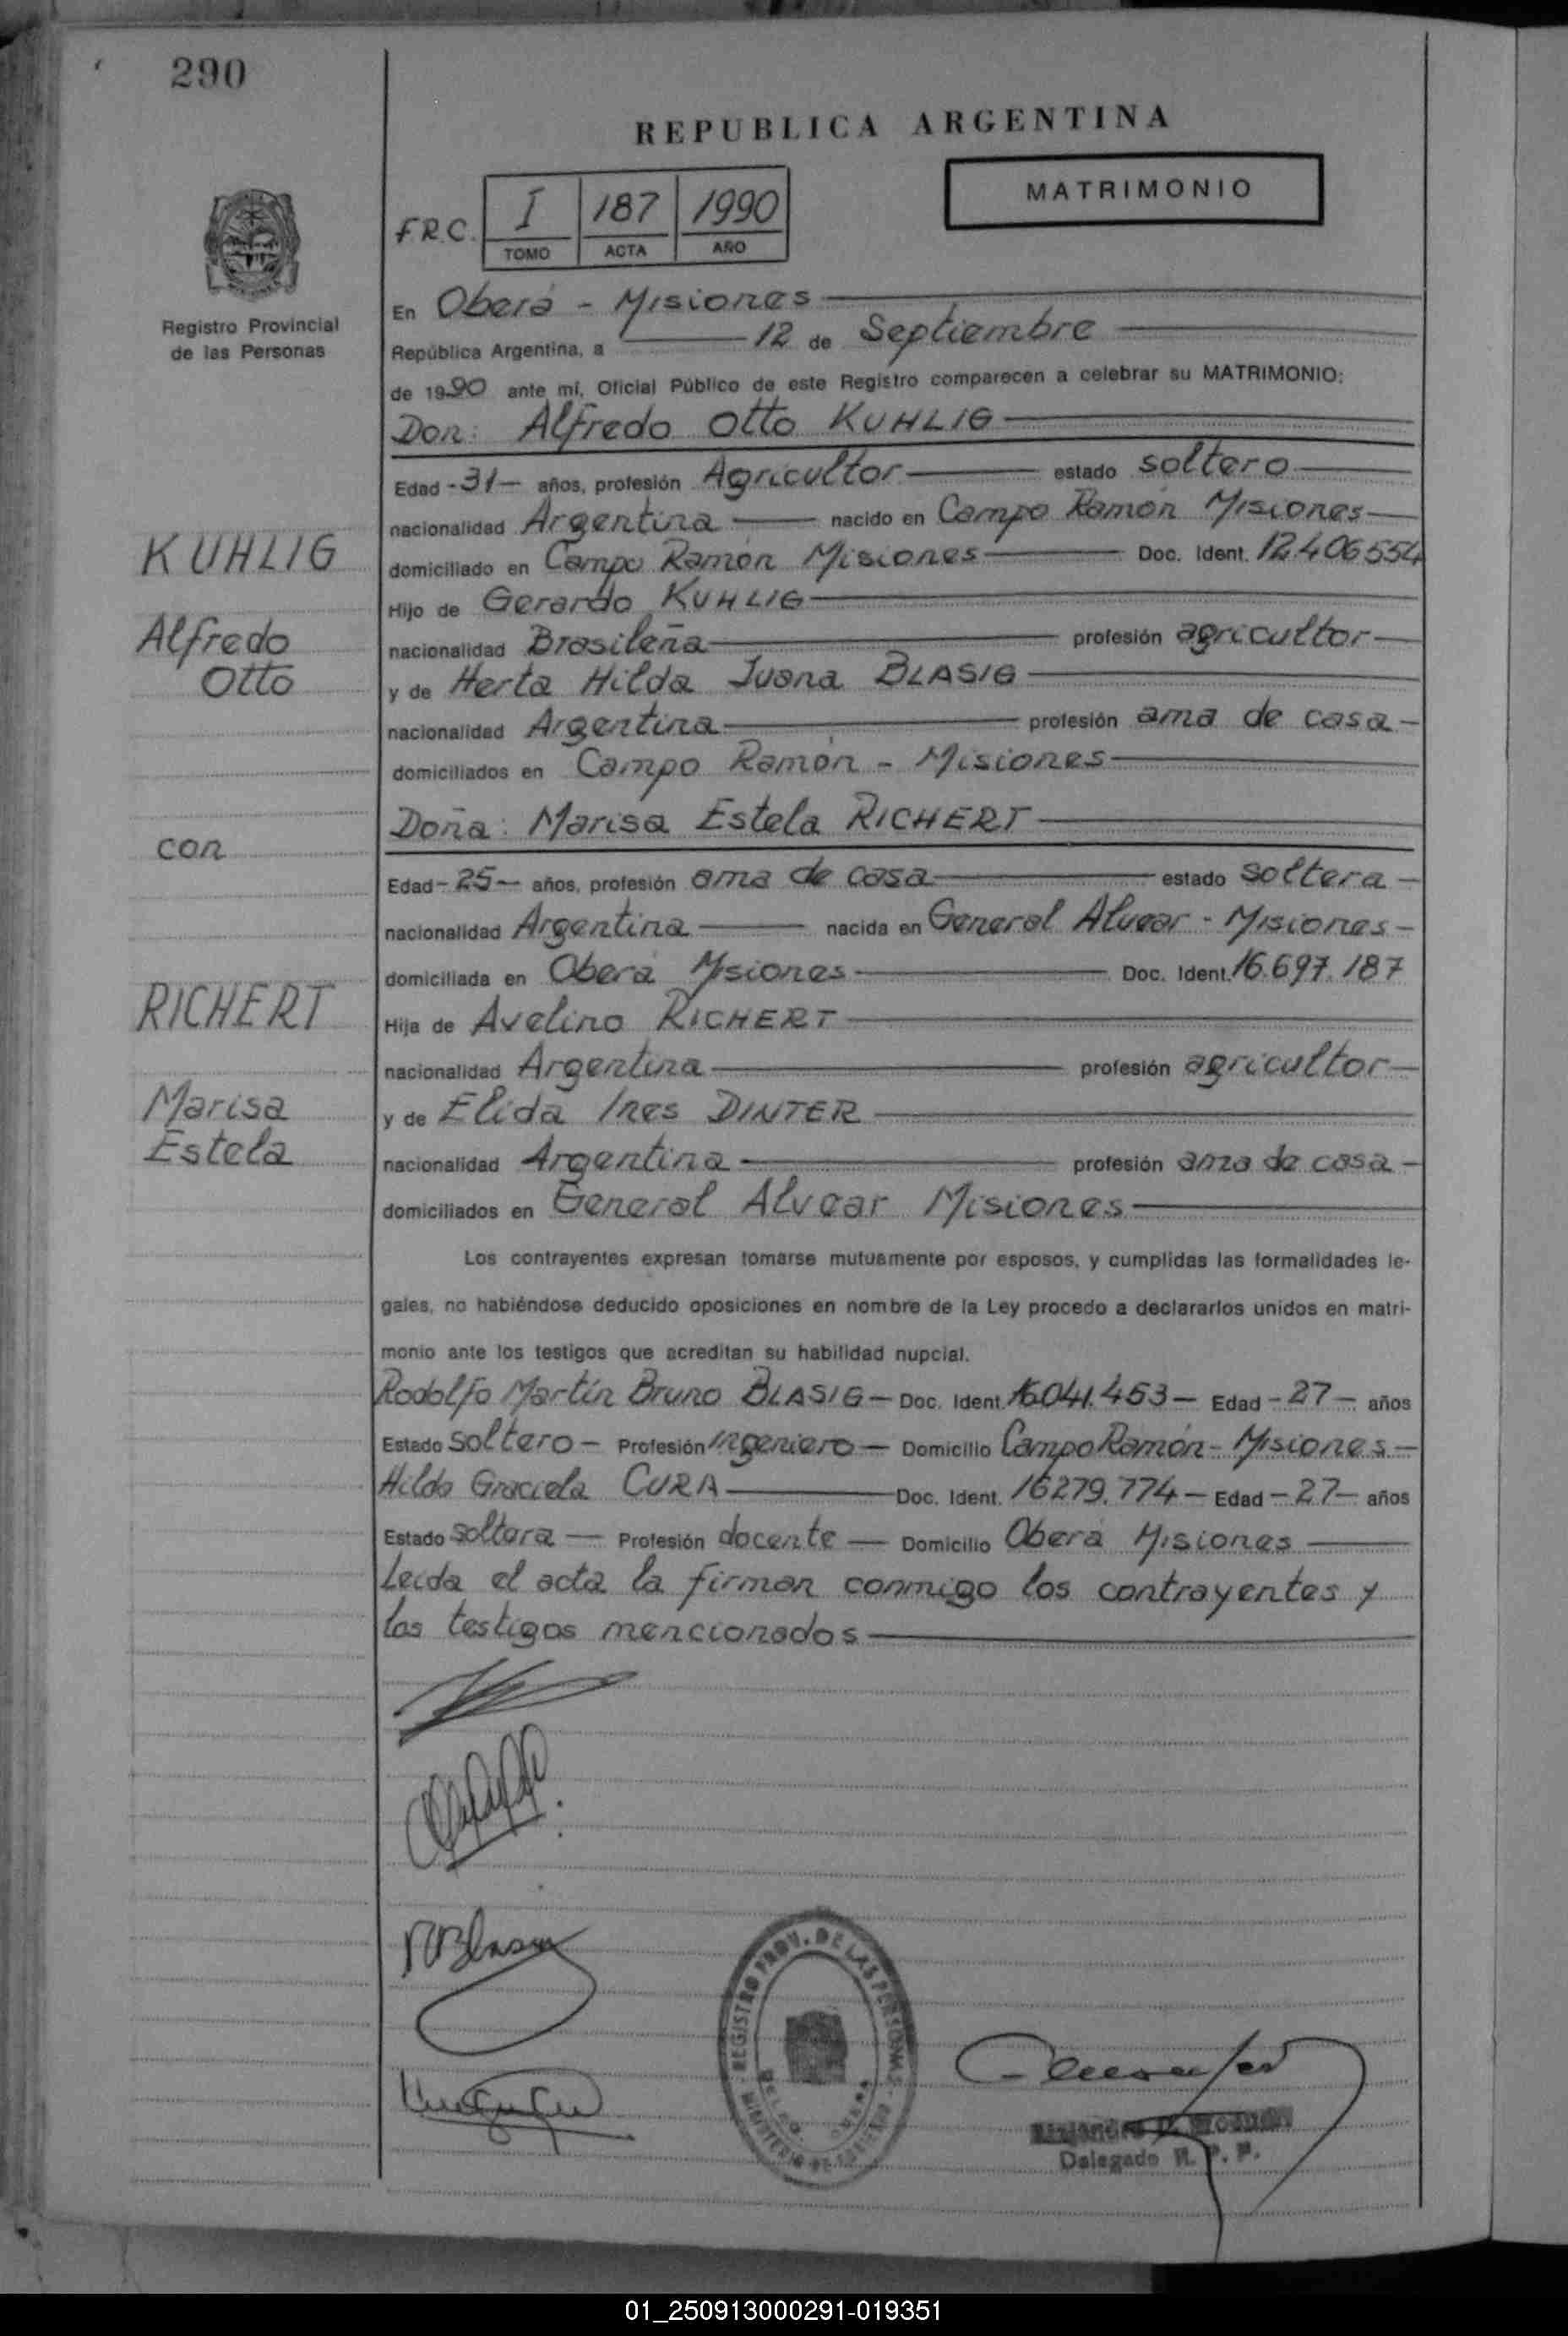 290
REPUBLICA ARGENTINA
MATRIMONIO
F.R.C. I 187 1990
TOMO ACTA AÑO
Registro Provincial
de las Personas
En Oberá - Misiones
República Argentina, a 12 de Septiembre
de 1990 ante mí, Oficial Público de este Registro comparecen a celebrar su MATRIMONIO:
Don: Alfredo Otto KUHLIG
Edad - 31 - años, profesión Agricultor estado soltero
nacionalidad Argentina nacido en Campo Ramón Misiones
KUHLIG
domiciliado en Campo Ramón Misiones Doc. Ident. 12.406554
Hijo de Gerardo KUHLIG
Alfredo
nacionalidad Brasileña profesión agricultor
Otto
y de Herta Hilda Juana BLASIG
nacionalidad Argentina profesión ama de casa
domiciliados en Campo Ramón - Misiones
Doña: Marisa Estela RICHERT
con
Edad - 25 - años, profesión ama de casa estado soltera
nacionalidad Argentina nacida en General Alvear - Misiones
domiciliada en Oberá Misiones Doc. Ident. 16.697.187
RICHERT
Hija de Avelino RICHERT
nacionalidad Argentina profesión agricultor
Marisa
y de Elida Ines DINTER
Estela
nacionalidad Argentina profesión ama de casa
domiciliados en General Alvear Misiones
Los contrayentes expresan tomarse mutuamente por esposos, y cumplidas las formalidades le-
gales, no habiéndose deducido oposiciones en nombre de la Ley procedo a declararlos unidos en matri-
monio ante los testigos que acreditan su habilidad nupcial.
Rodolfo Martín Bruno BLASIG - Doc. Ident. 16.041.453 - Edad - 27 - años
Estado soltero - Profesión Ingeniero - Domicilio Campo Ramón - Misiones
Hilda Graciela CURA Doc. Ident. 16279.774 - Edad - 27 - años
Estado soltera - Profesión docente - Domicilio Oberá Misiones
Leída el acta la firman conmigo los contrayentes y
los testigos mencionados
REGISTRO PROV. DE LAS PERSONAS
Delegado R. P. P.
01_250913000291-019351